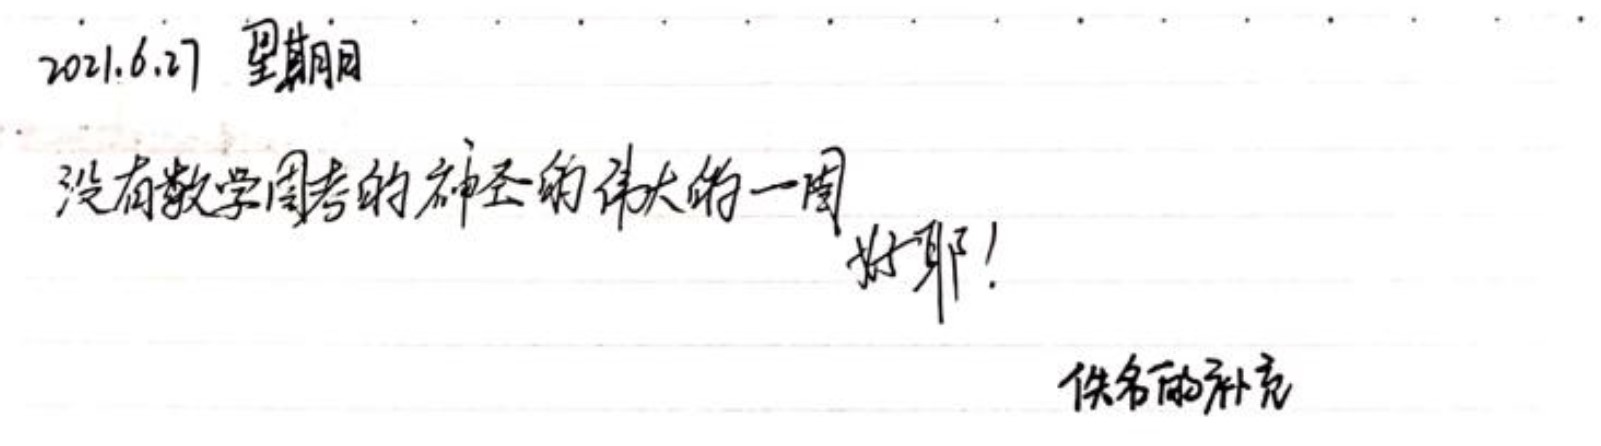 2021.6.27 星期日
没有数学周考的神圣的伟大的一周
好耶!
佚名的补充